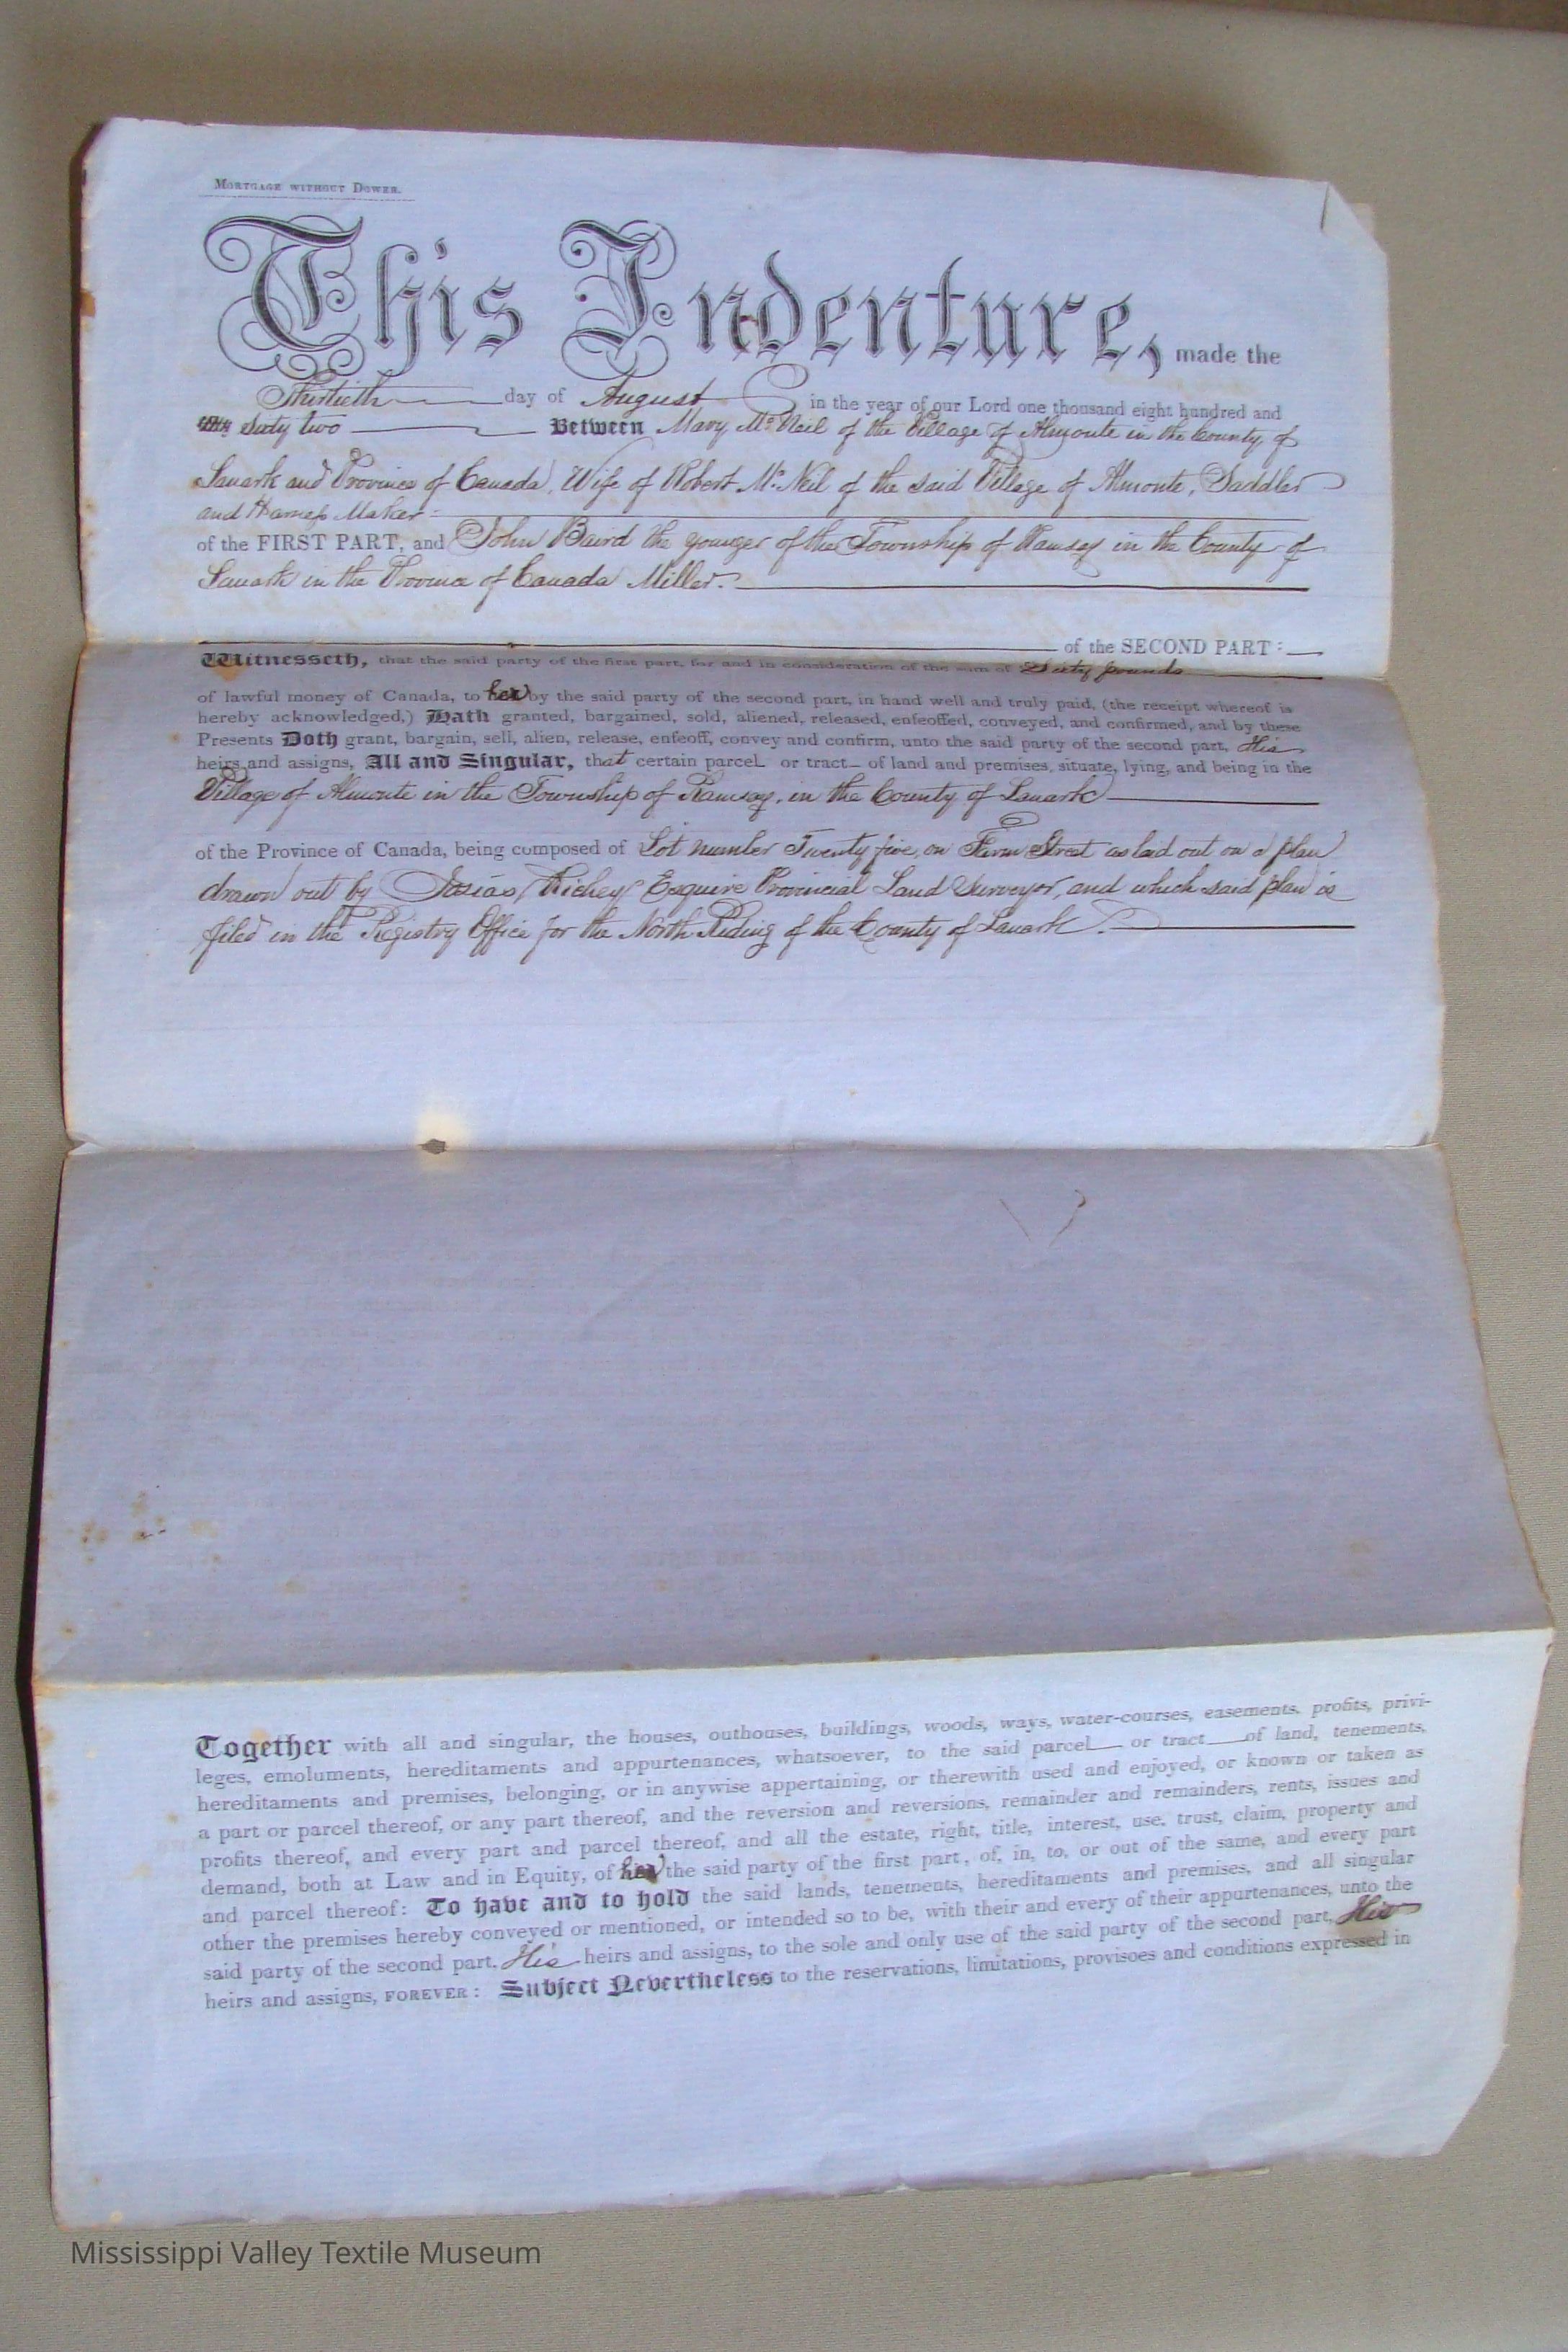 MORTGAGE WITHOUT DOWER.
This Indenture, made the
Thirtieth day of August in the year of our Lord one thousand eight hundred and
Sixty two Between Mary McNeil of the Village of Almonte in the County of
Lanark and Province of Canada, Wife of Robert McNeil of the said Village of Almonte, Saddler
and Harness Maker
of the FIRST PART, and John Baird the younger of the Township of Ramsay in the County of
Lanark in the Province of Canada Miller.
of the SECOND PART:
Witnesseth, that the said party of the first part, for and in consideration of the sum of Sixty pounds
of lawful money of Canada, to her by the said party of the second part, in hand well and truly paid, (the receipt whereof is
hereby acknowledged,) Hath granted, bargained, sold, aliened, released, enfeoffed, conveyed, and confirmed, and by these
Presents Doth grant, bargain, sell, alien, release, enfeoff, convey and confirm, unto the said party of the second part, His
heirs and assigns, All and Singular, that certain parcel or tract of land and premises, situate, lying, and being in the
Village of Almonte in the Township of Ramsay, in the County of Lanark
of the Province of Canada, being composed of Lot number Twenty five, on Farm Street as laid out on a plan
drawn out by Josias Richey Esquire Provincial Land Surveyor, and which said plan is
filed in the Registry Office for the North Riding of the County of Lanark.
Together with all and singular, the houses, outhouses, buildings, woods, ways, water-courses, easements, profits, privi-
leges, emoluments, hereditaments and appurtenances, whatsoever, to the said parcel or tract of land, tenements,
hereditaments and premises, belonging, or in anywise appertaining, or therewith used and enjoyed, or known or taken as
a part or parcel thereof, or any part thereof, and the reversion and reversions, remainder and remainders, rents, issues and
profits thereof, and every part and parcel thereof, and all the estate, right, title, interest, use, trust, claim, property and
demand, both at Law and in Equity, of her the said party of the first part, of, in, to, or out of the same, and every part
and parcel thereof: To have and to hold the said lands, tenements, hereditaments and premises, and all singular
other the premises hereby conveyed or mentioned, or intended so to be, with their and every of their appurtenances, unto the
said party of the second part, His heirs and assigns, to the sole and only use of the said party of the second part, His
heirs and assigns, FOREVER: Subject Nevertheless to the reservations, limitations, provisoes and conditions expressed in
Mississippi Valley Textile Museum